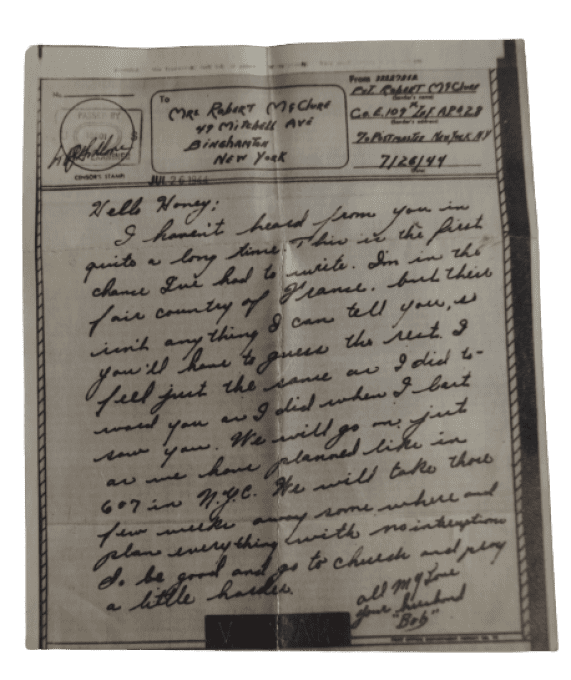 No.
To
From
PASSED BY
EXAMINER
CENSOR'S STAMP
MRS Robert McClure
49 Mitchell Ave
Binghamton
New York
Pvt. Robert McClure
(Sender's name)
Co. E. 109th Inf APO 28
(Sender's address)
% Postmaster New York NY
7/26/44
JUL 26 1944
Hello Honey:
I haven't heard from you in
quite a long time. This is the first
chance I've had to write. I'm in the
fair country of France. but there
isn't anything I can tell you, so
you'll have to guess the rest. I
feel just the same as I did to-
ward you as I did when I last
saw you. We will go on just
as we have planned like in
607 in N.Y.C. We will take those
few weeks away some where and
plan everything with no interuptions
So be good and go to church and pray
a little harder.
all My Love
your husband
"Bob"
V MAIL